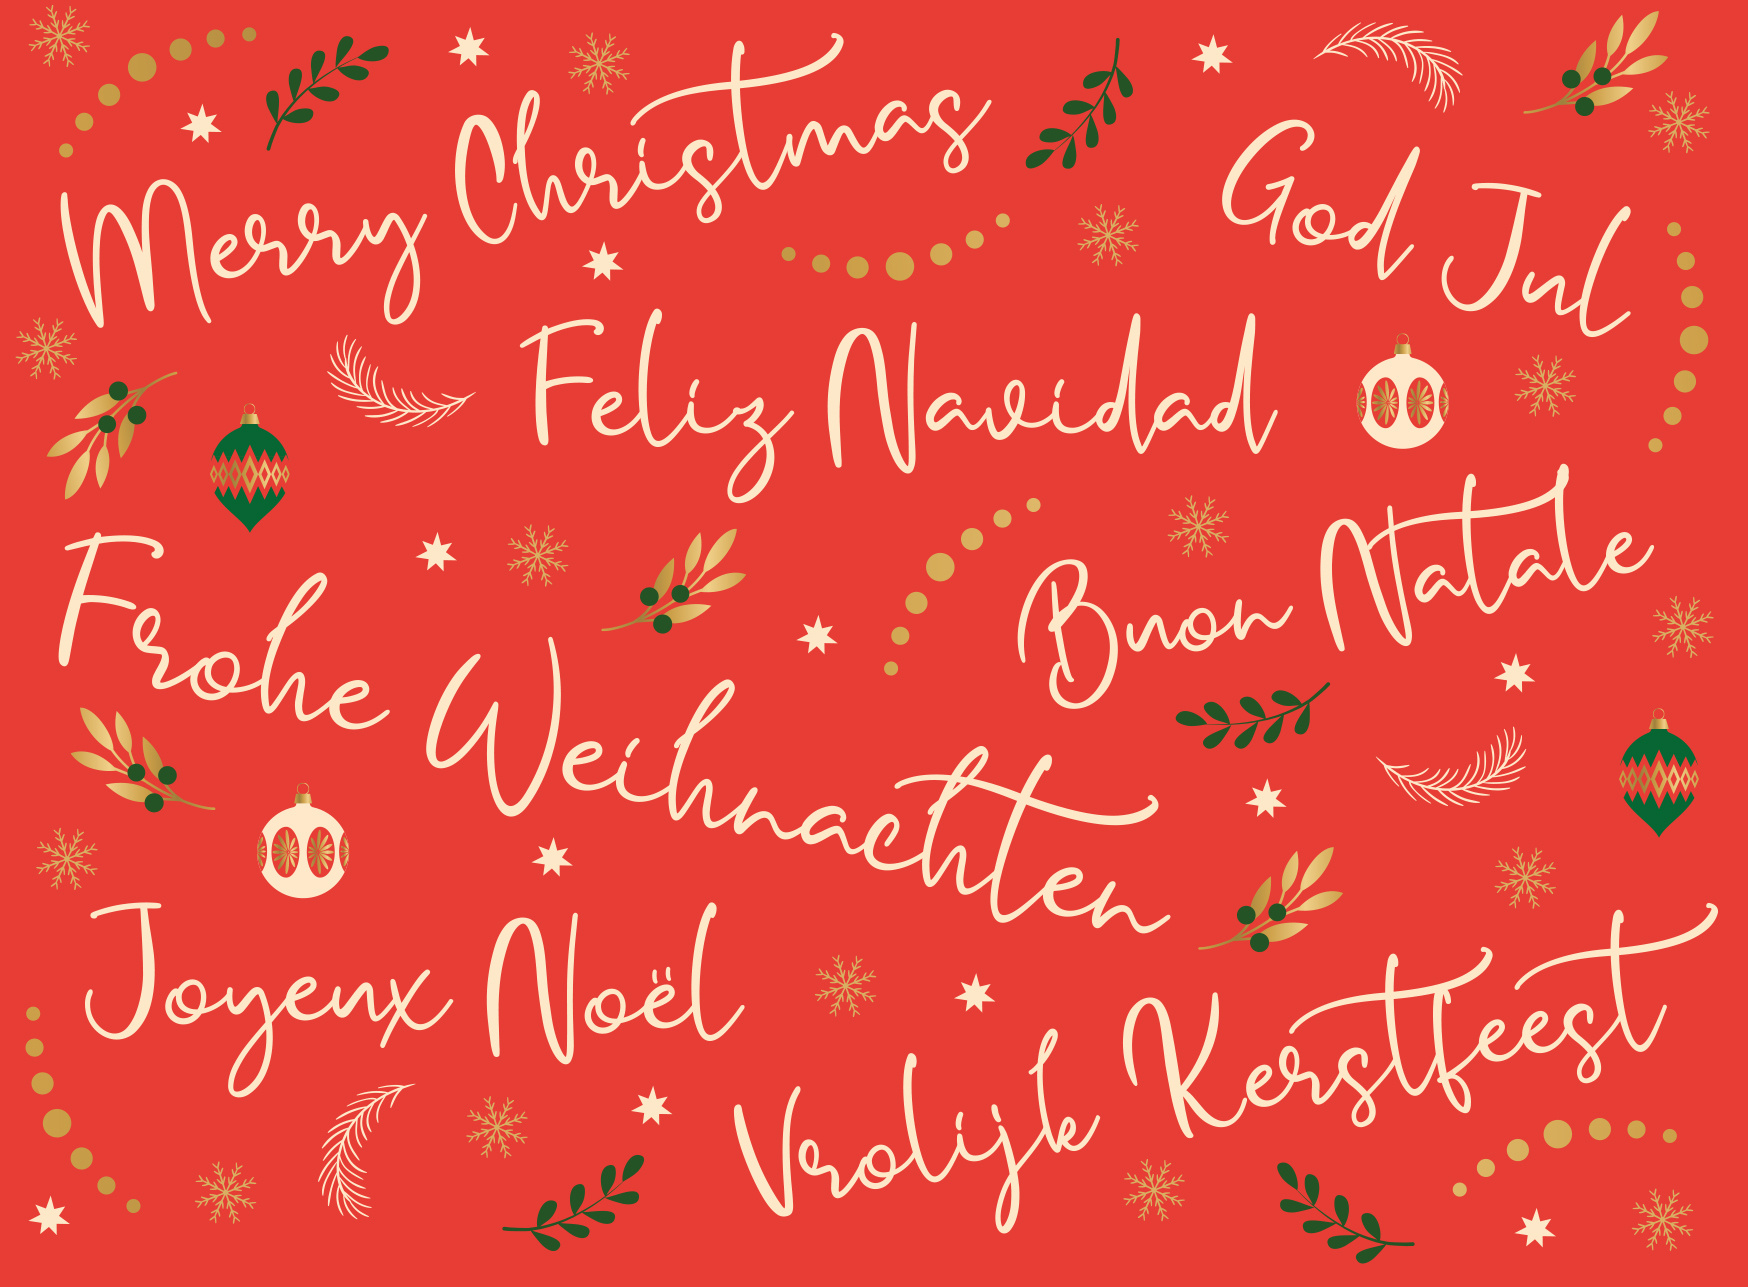 Merry Christmas
God Jul
Feliz Navidad
Buon Natale
Frohe Weihnachten
Joyeux Noël
Vrolijk Kerstfeest